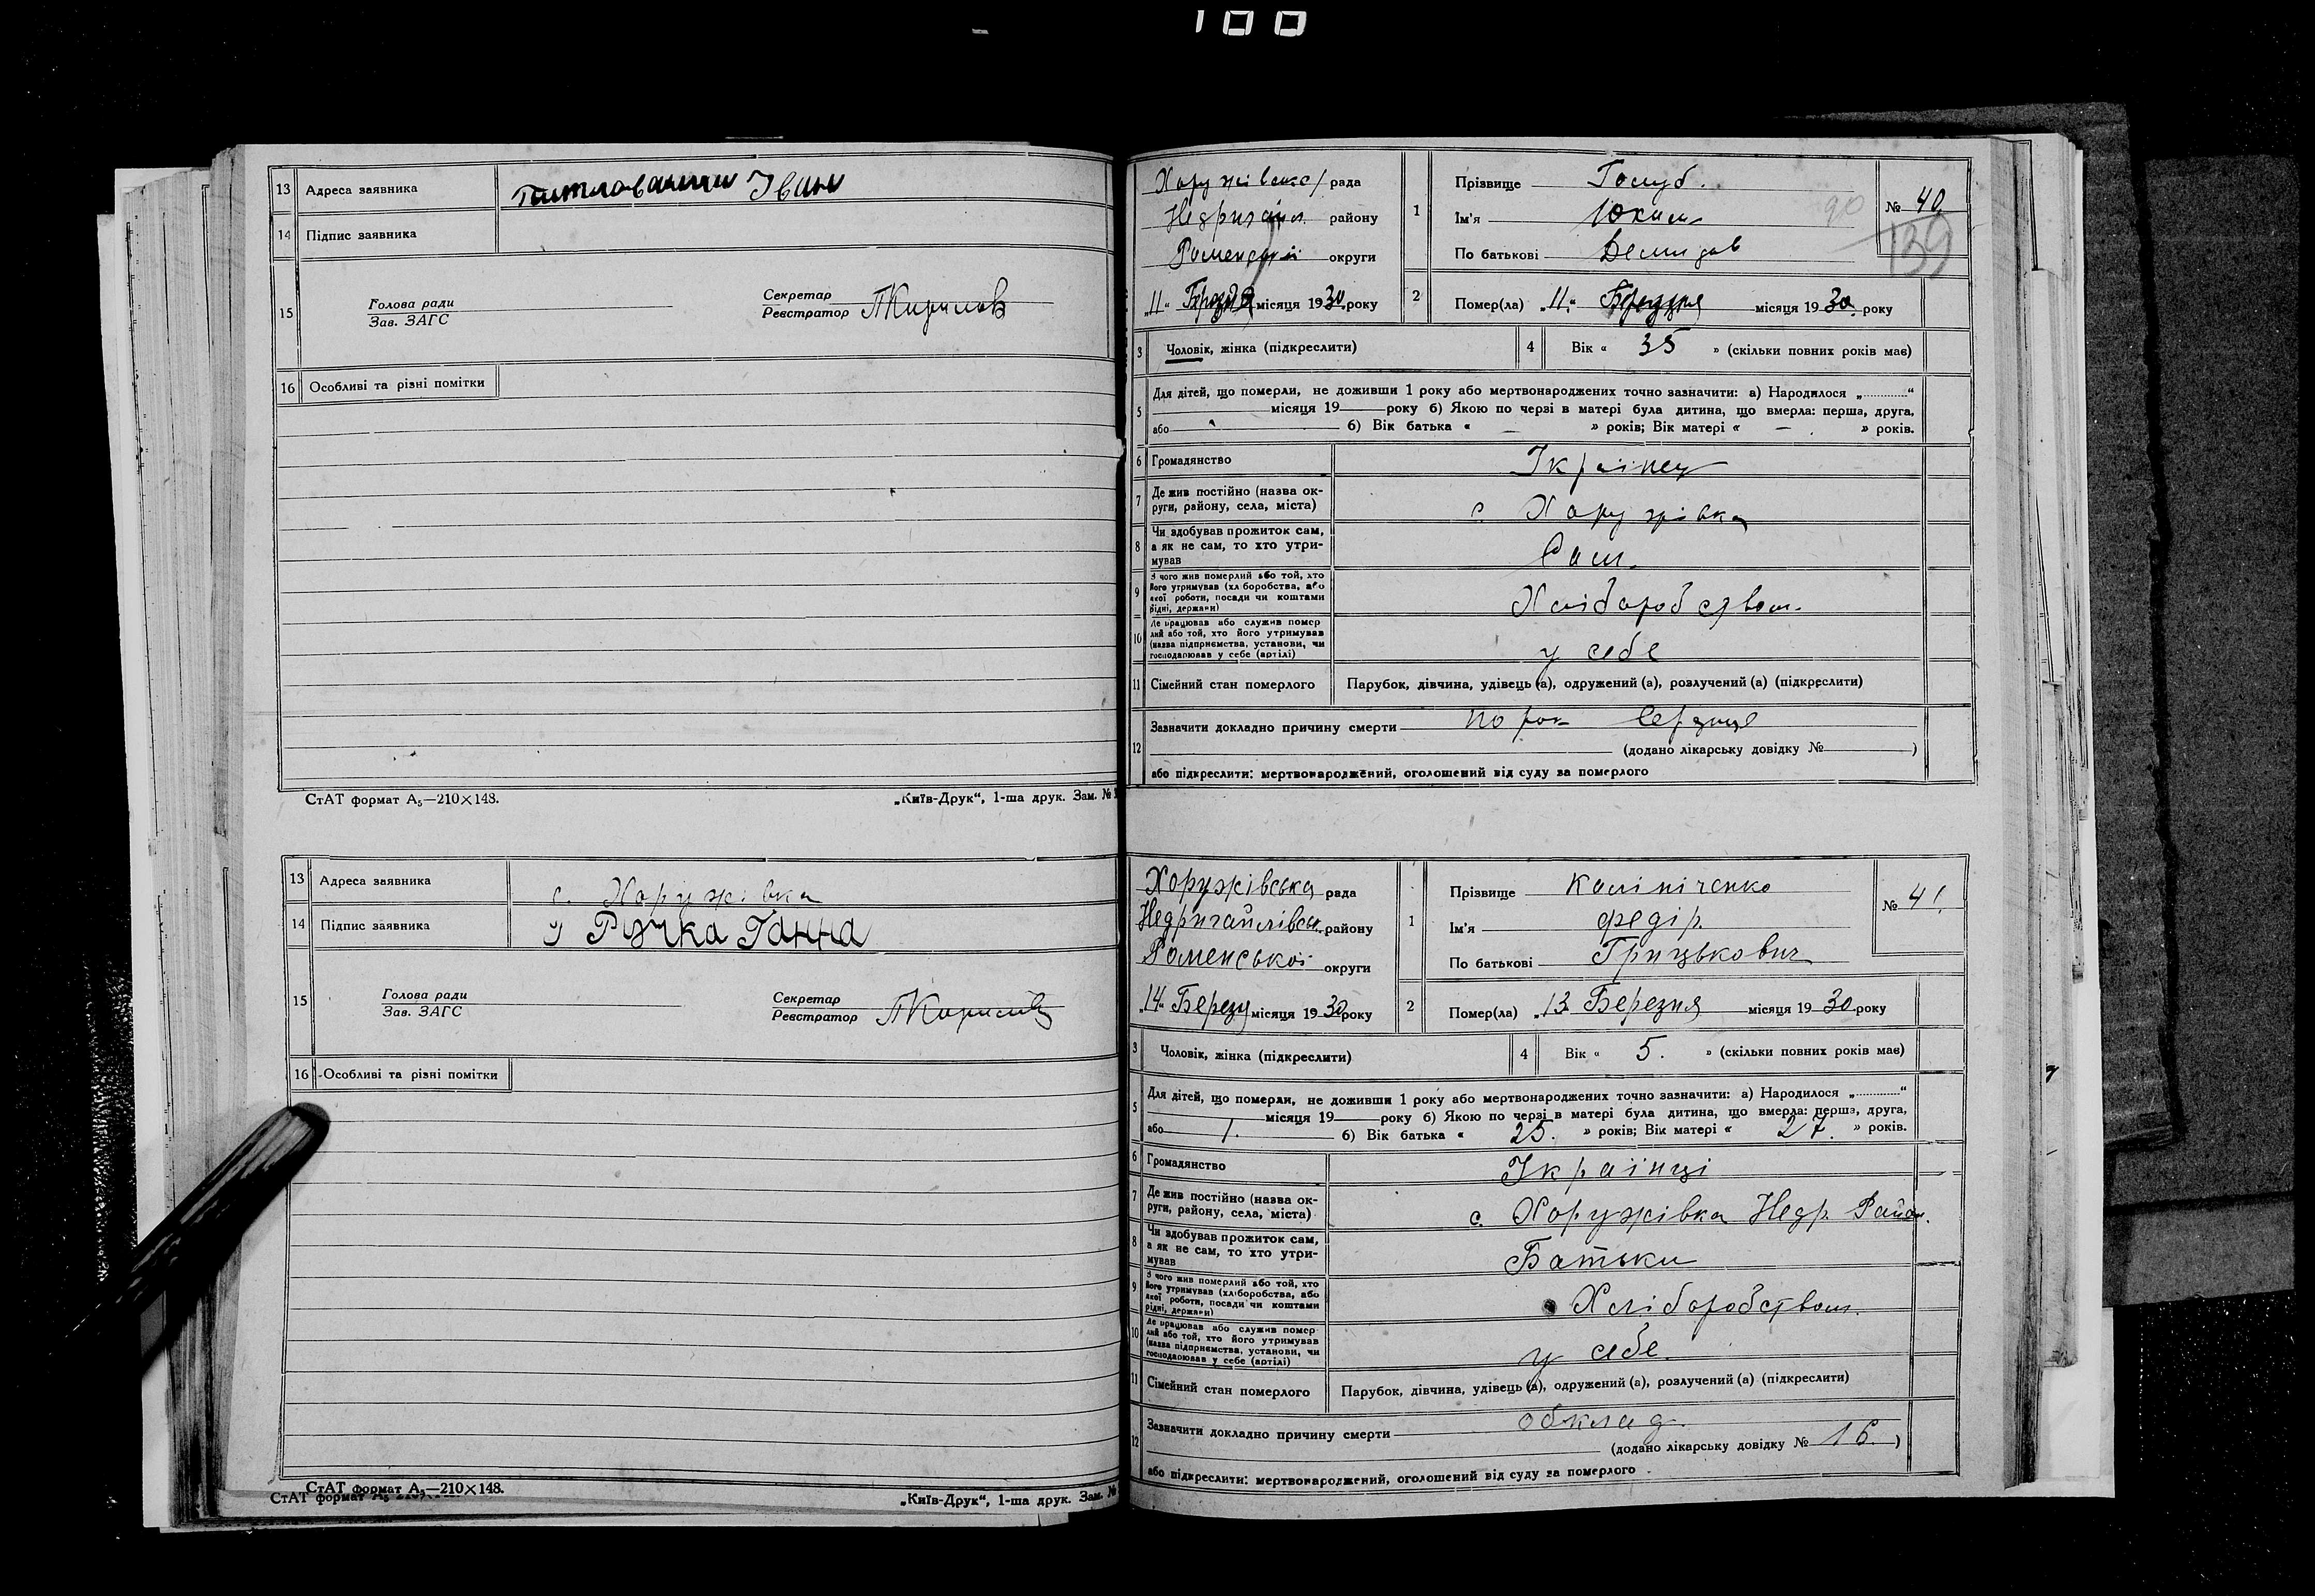 100
13 Адреса заявника
Іван
14 Підпис заявника
15 Голова ради
Зав. ЗАГС
Секретар
Реєстратор
16 Особливі та різні помітки
СтАТ формат А₅—210×148.
„Київ-Друк“, 1-ша друк. Зам. №
13 Адреса заявника с. Хоружівка
14 Підпис заявника Ручка Ганна
15 Голова ради
Зав. ЗАГС
Секретар
Реєстратор
16 Особливі та різні помітки
СтАТ формат А₅—210×148.
СтАТ формат А₅
„Київ-Друк“, 1-ша друк. Зам. №
рада
району
округи
„11“ місяця 1930 року
1 Прізвище Голуб.
Ім'я Юхим
По батькові Демидов
90
№ 40
139
2 Помер(ла) „11“ Березня місяця 1930. року
3 Чоловік, жінка (підкреслити)
4 Вік « 35 » (скільки повних років має)
5 Для дітей, що померли, не доживши 1 року або мертвонароджених точно зазначити: а) Народилося „............“
місяця 19 року б) Якою по черзі в матері була дитина, що вмерла: перша, друга,
або б) Вік батька « — » років; Вік матері « — » років.
6 Громадянство Українець
7 Де жив постійно (назва ок-
руги, району, села, міста)
с. Харужівка
8 Чи здобував прожиток сам,
а як не сам, то хто утри-
мував
Сам.
9 З чого жив померлий або той, хто
його утримував (хліборобства, або
якої роботи, посади чи коштами
рідні, держави)
Хліборобством.
10 Де працював або служив помер
лий або той, хто його утримував
(назва підприємства, установи, чи
господарював у себе (артілі)
у себе
11 Сімейний стан померлого Парубок, дівчина, удівець (а), одружений (а), розлучений (а) (підкреслити)
12 Зазначити докладно причину смерти порок сердце
(додано лікарську довідку № )
або підкреслити: мертвонароджений, оголошений від суду за померлого
Хоружівська рада
Недригайлівськ. району
Роменської округи
„14“ Березня місяця 1930 року
1 Прізвище Калініченко
Ім'я Федір.
По батькові Грицькович
№ 41.
2 Помер(ла) „13 Березня місяця 1930 року
3 Чоловік, жінка (підкреслити)
4 Вік « 5. » (скільки повних років має)
5 Для дітей, що померли, не доживши 1 року або мертвонароджених точно зазначити: а) Народилося „............“
місяця 19 року б) Якою по черзі в матері була дитина, що вмерла: перша, друга,
або 1. б) Вік батька « 25. » років; Вік матері « 27. » років.
6 Громадянство Українці
7 Де жив постійно (назва ок-
руги, району, села, міста)
с. Хоружівка Недр. Район.
8 Чи здобував прожиток сам,
а як не сам, то хто утри-
мував
Батьки
9 З чого жив померлий або той, хто
його утримував (хліборобства, або
якої роботи, посади чи коштами
рідні, держави)
Хліборобством.
10 Де працював або служив помер
лий або той, хто його утримував
(назва підприємства, установи, чи
господарював у себе (артілі)
у себе.
11 Сімейний стан померлого Парубок, дівчина, удівець (а), одружений (а), розлучений (а) (підкреслити)
12 Зазначити докладно причину смерти обклад.
(додано лікарську довідку № 16. )
або підкреслити: мертвонароджений, оголошений від суду за померлого